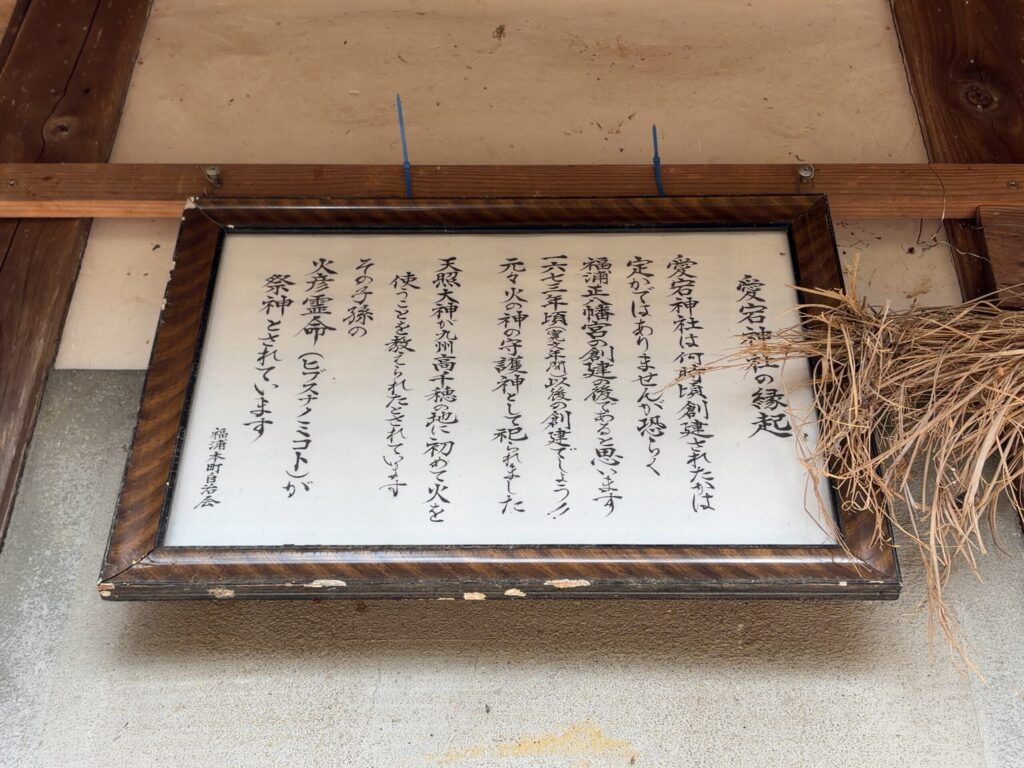 愛宕神社の縁起
愛宕神社は何時頃創建されたかは
定かではありませんが恐らく
福浦正八幡宮の創建の後であると思います
一六七三年頃(寛文年間以後の創建でしょう!!
元々火の神の守護神として祀られました
天照大神が九州高千穂の地に初めて火を
使うことを教えられたとされています
その子孫の
火彦霊命(ヒブスナノミコト)が
祭神とされています
福浦本町自治会